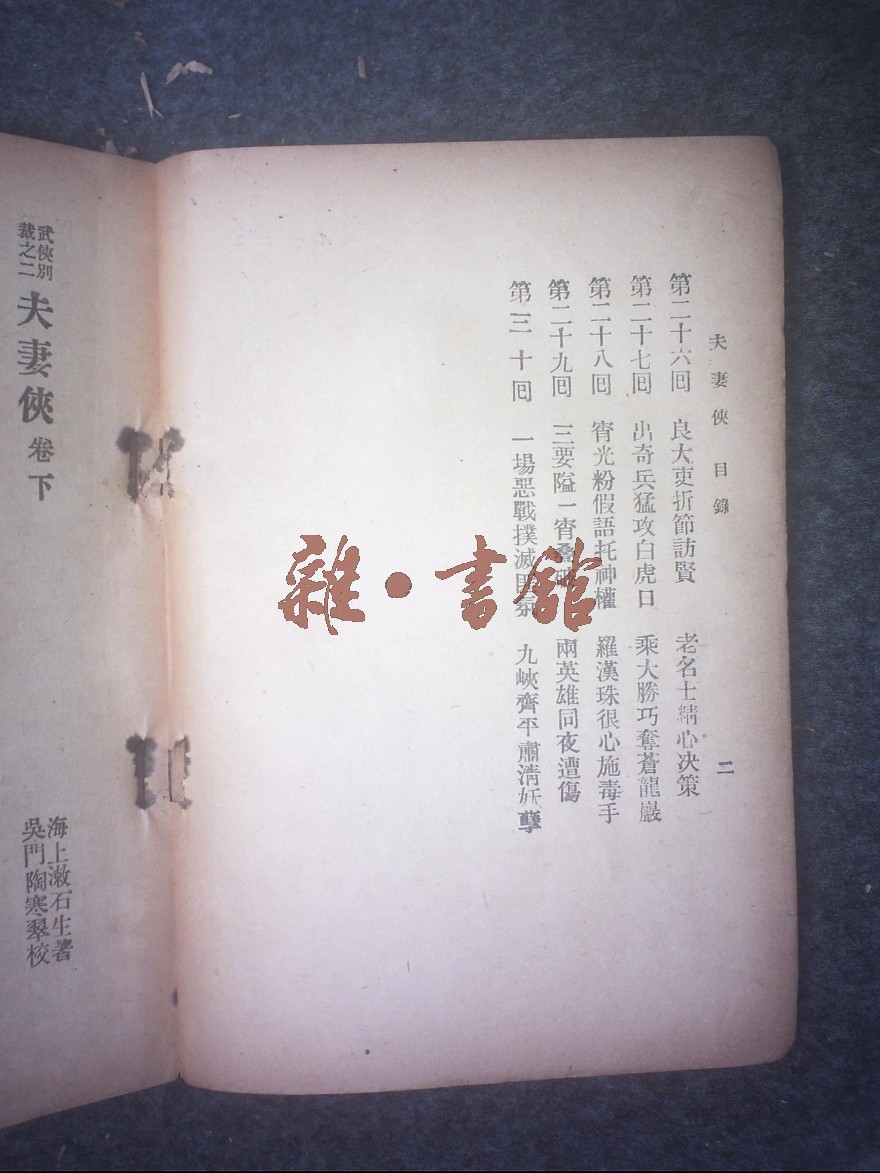 夫妻俠 目錄 二
第二十六回 良大吏折節訪賢 老名士精心决策
第二十七回 出奇兵猛攻白虎口 乘大勝巧奪蒼龍巖
第二十八回 宵光粉假語托神權 羅漢珠很心施毒手
第二十九回 三要隘一宵叠破 兩英雄同夜遭傷
第三十回 一場惡戰撲滅 氛 九峽齊平肅清妖孽
武俠別
裁之二
夫妻俠 卷下
海上漱石生著
吳門陶寒翠校
雜·書館